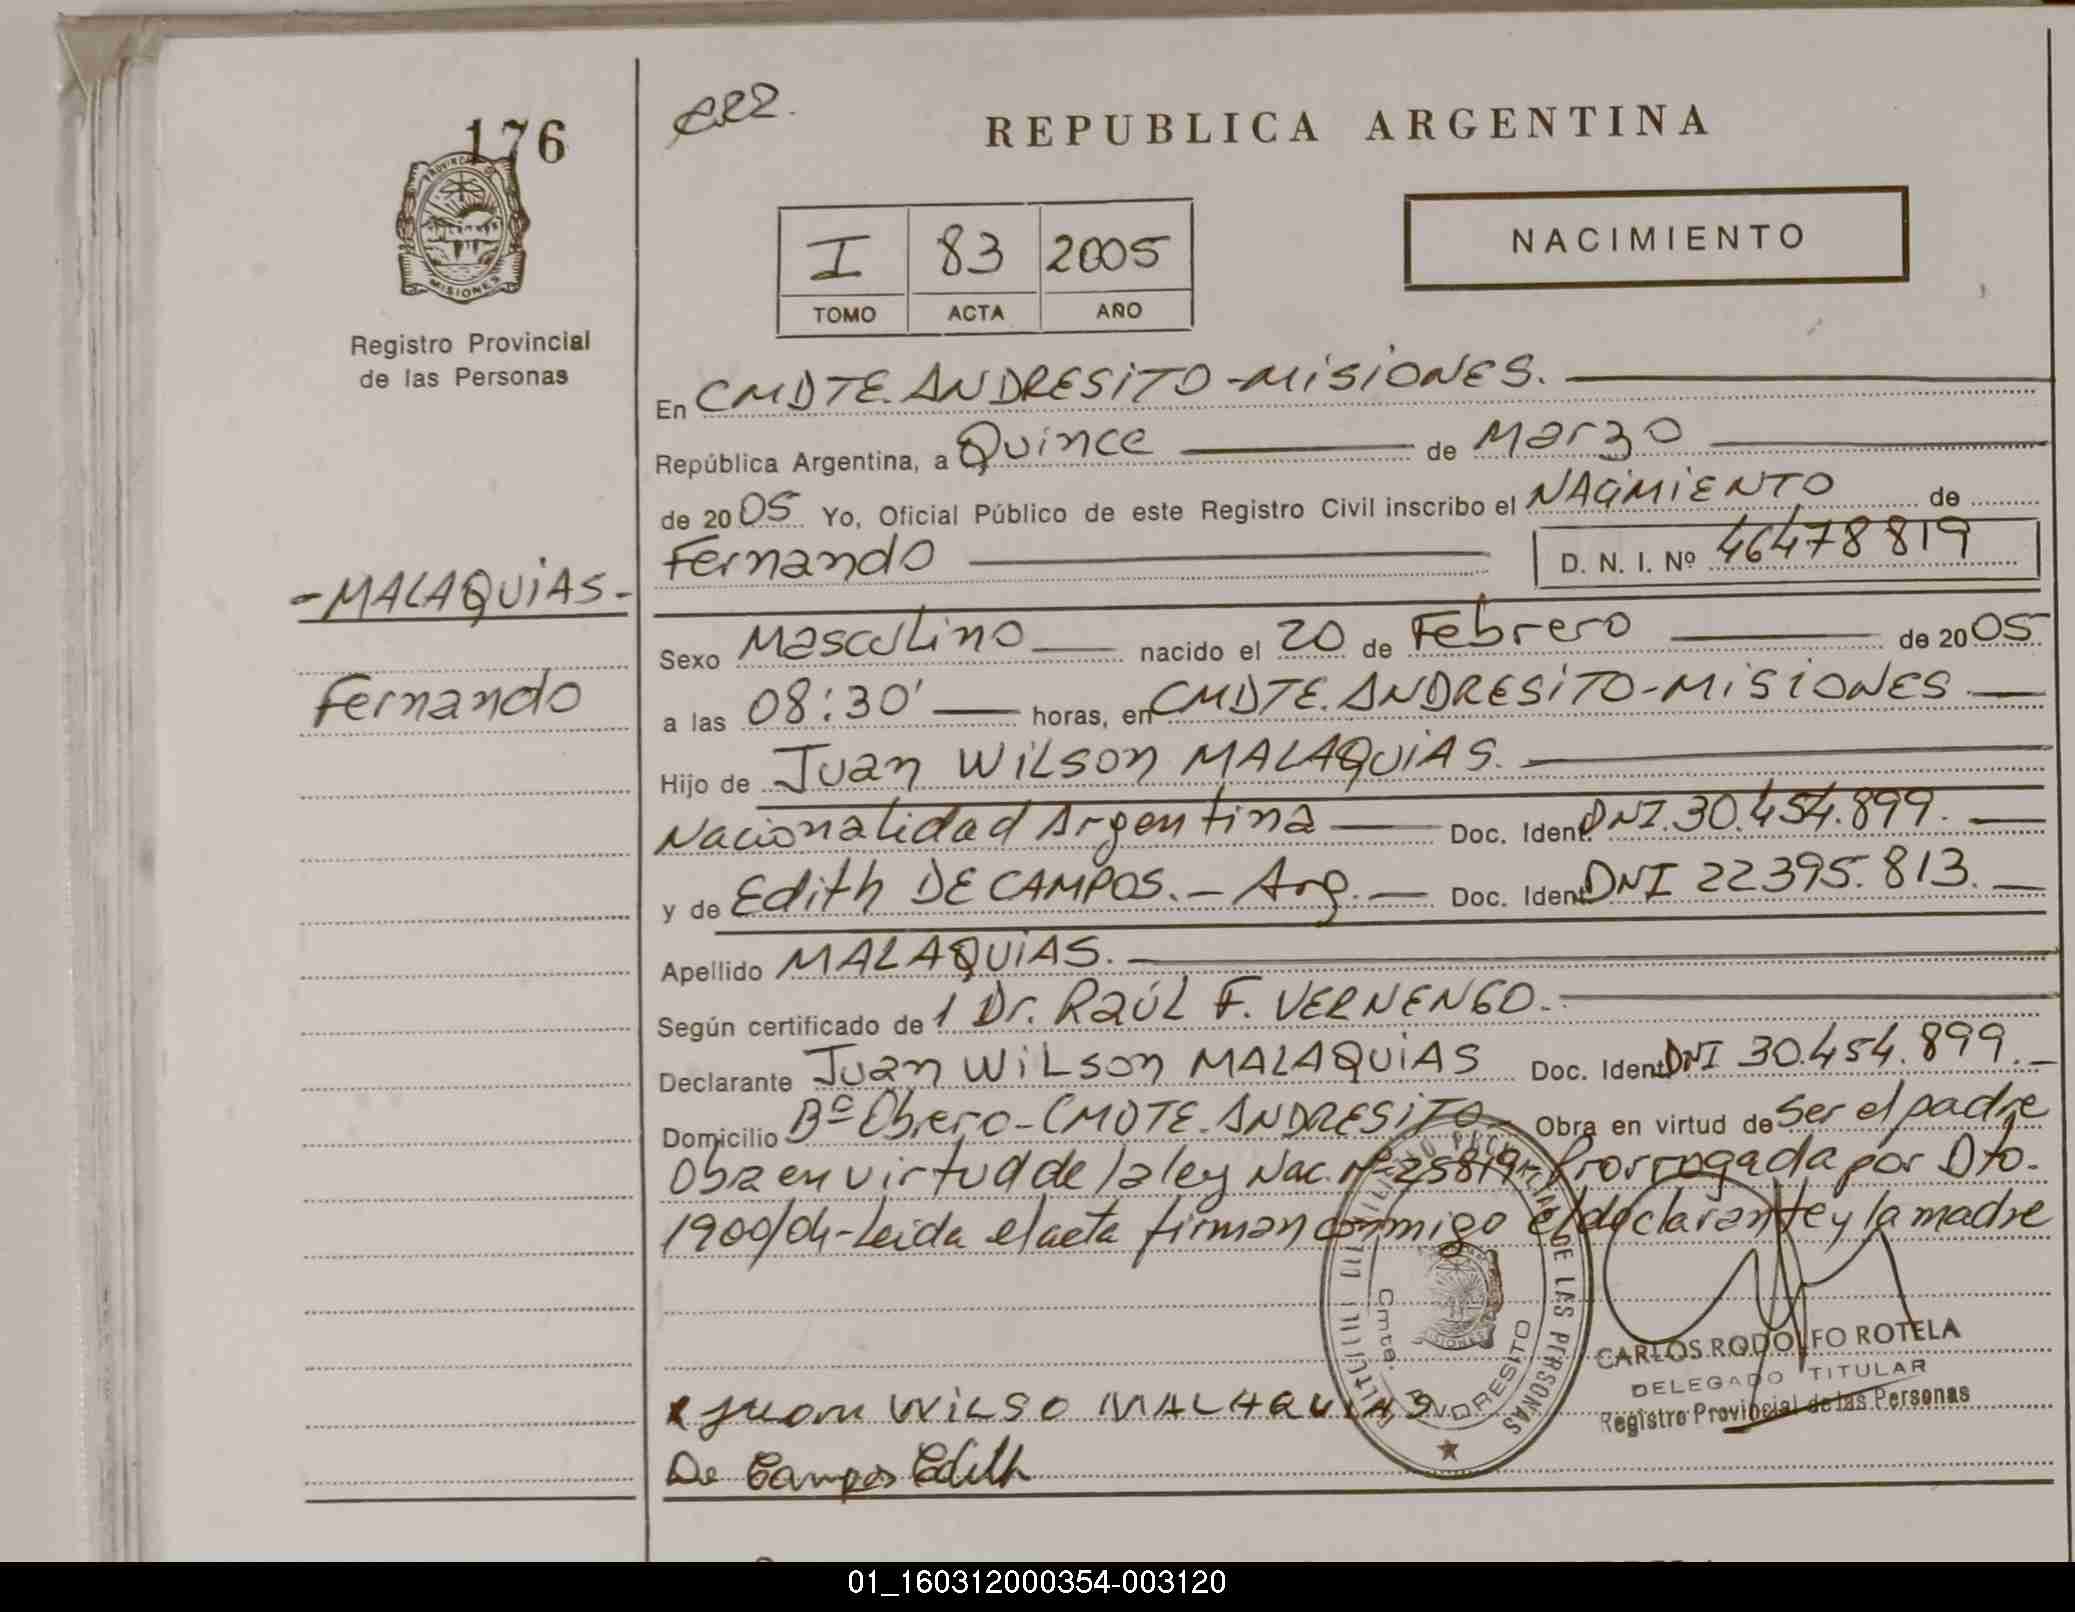 176
PROVINCIA DE
MISIONES
Registro Provincial
de las Personas
-MALAQUIAS-
Fernando
REPUBLICA ARGENTINA
I 83 2005
TOMO ACTA AÑO
NACIMIENTO
En CMDTE. ANDRESITO-MISIONES.
República Argentina, a Quince de Marzo
de 2005 Yo, Oficial Público de este Registro Civil inscribo el NACIMIENTO de
Fernando D. N. I. Nº 46478819
Sexo Masculino nacido el 20 de Febrero de 2005
a las 08:30' horas, en CMDTE. ANDRESITO-MISIONES
Hijo de Juan WILSON MALAQUIAS.
Nacionalidad Argentina Doc. Ident. DNI. 30.454.899.
y de Edith DE CAMPOS. - Arg. Doc. Ident. DNI 22395.813.
Apellido MALAQUIAS.
Según certificado de 1 Dr. RAÚL F. VERNENGO.
Declarante Juan WILSON MALAQUIAS Doc. Ident. DNI 30.454.899.
Domicilio Bº Obrero-CMDTE. ANDRESITO- Obra en virtud de Ser el padre
Obra en virtud de la ley Nac. Nº 25819- Prorrogada por Dto.
1900/04-Leida el acta firman conmigo el declarante y la madre
DE LAS PERSONAS
Cmte. ANDRESITO
CARLOS RODOLFO ROTELA
DELEGADO TITULAR
Registro Provincial de las Personas
x Juan WILSO MALAQUIAS
De Campos Edith
01_160312000354-003120